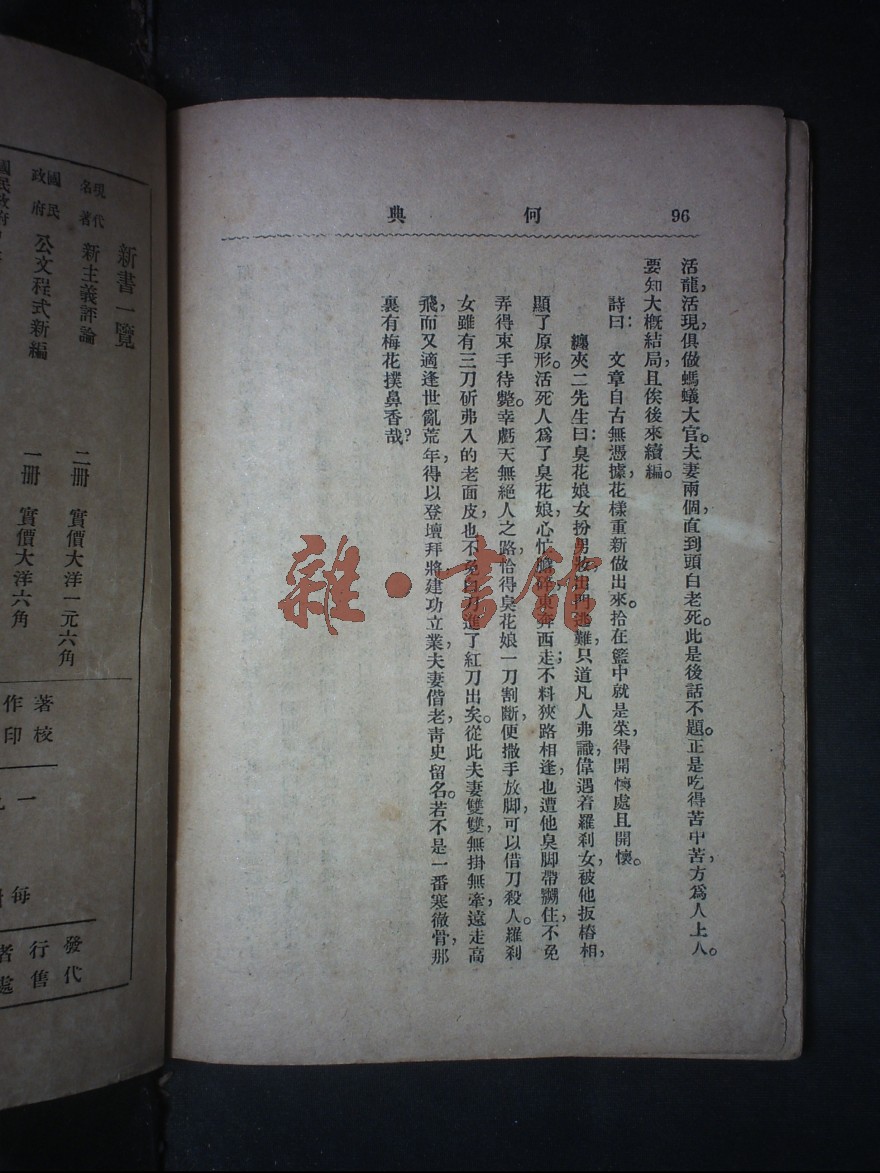 96
何典
活龍活現,俱做螞蟻大官。夫妻兩個,直到頭白老死。此是後話不題。正是吃得苦中苦,方爲人上人。
要知大概結局,且俟後來續編。
詩曰: 文章自古無憑據,花樣重新做出來。拾在籃中就是菜,得開懷處且開懷。
纏夾二先生曰:臭花娘女扮男妝出門逃難,只道凡人弗識,偉遇着羅刹女,被他扳樁相,
顯了原形。活死人爲了臭花娘,心忙膽碎,東奔西走;不料狹路相逢,也遭他臭脚帶嬲住,不免
弄得束手待斃。幸虧天無絕人之路,恰得臭花娘一刀割斷,便撒手放脚,可以借刀殺人。羅刹
女雖有三刀斫弗入的老面皮,也不免白刀進了紅刀出矣。從此夫妻雙雙,無掛無牽,遠走高
飛,而又適逢世亂荒年,得以登壇拜將,建功立業,夫妻偕老,靑史留名。若不是一番寒徹骨,那
裏有梅花撲鼻香哉?
雜·書館
新書一覽
現代名著 新主義評論 二冊 實價大洋一元六角
國民政府 公文程式新編 一冊 實價大洋六角
國民政府
著作
校印
一九
每
發行者
代售處